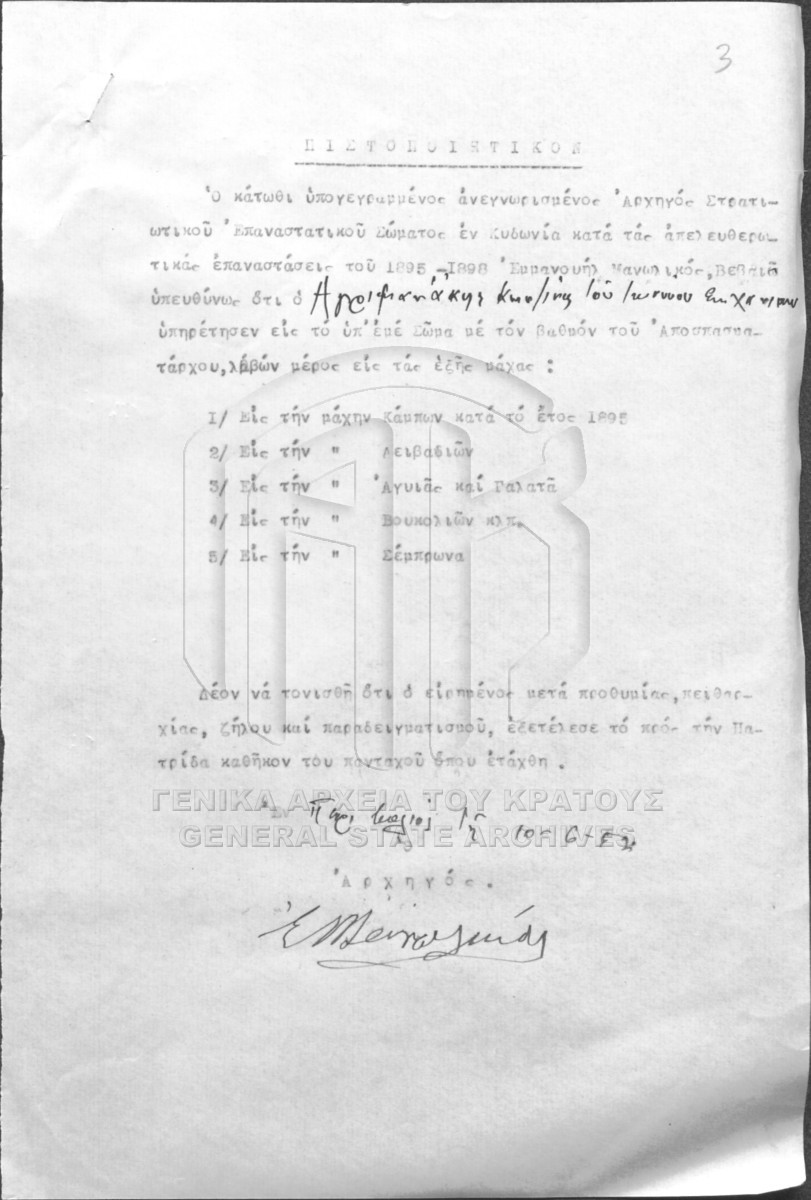 3
ΠΙΣΤΟΠΟΙΗΤΙΚΟΝ
Ὁ κάτωθι ὑπογεγραμμένος ἀνεγνωρισμένος Ἀρχηγός Στρατι-
ωτικοῦ Ἐπαναστατικοῦ Σώματος ἐν Κυδωνία κατά τάς ἀπελευθερω-
τικάς ἐπαναστάσεις τοῦ 1895-1898 Ἐμμανουήλ Μανωλικός, Βεβαιῶ
ὑπευθύνως ὅτι ὁ Ἀγριμανάκης τοῦ Ἰωάννου
ὑπηρέτησεν εἰς τό ὑπ'ἐμέ Σῶμα μέ τόν βαθμόν τοῦ Ἀποσπασμα-
τάρχου, λαβών μέρος εἰς τάς ἑξῆς μάχας :
1/ Εἰς τήν μάχην Κάμπων κατά τό ἔτος 1895
2/ Εἰς τήν " Λειβαδιῶν
3/ Εἰς τήν " Ἀγυιᾶς καί Γαλατᾶ
4/ Εἰς τήν " Βουκολιῶν κλπ.
5/ Εἰς τήν " Σέμπρωνα
Δέον νά τονισθῆ ὅτι ὁ εἰρημένος μετά προθυμίας, πειθαρ-
χίας, ζήλου καί παραδειγματισμοῦ, ἐξετέλεσε τό πρός τήν Πα-
τρίδα καθῆκον του πανταχοῦ ὅπου ἐτάχθη .
ΓΕΝΙΚΑ ΑΡΧΕΙΑ ΤΟΥ ΚΡΑΤΟΥΣ
Ἐν τῇ 10-6-52
GENERAL STATE ARCHIVES
Ὁ
Ἀρχηγός.
Ἐ Μανωλικός